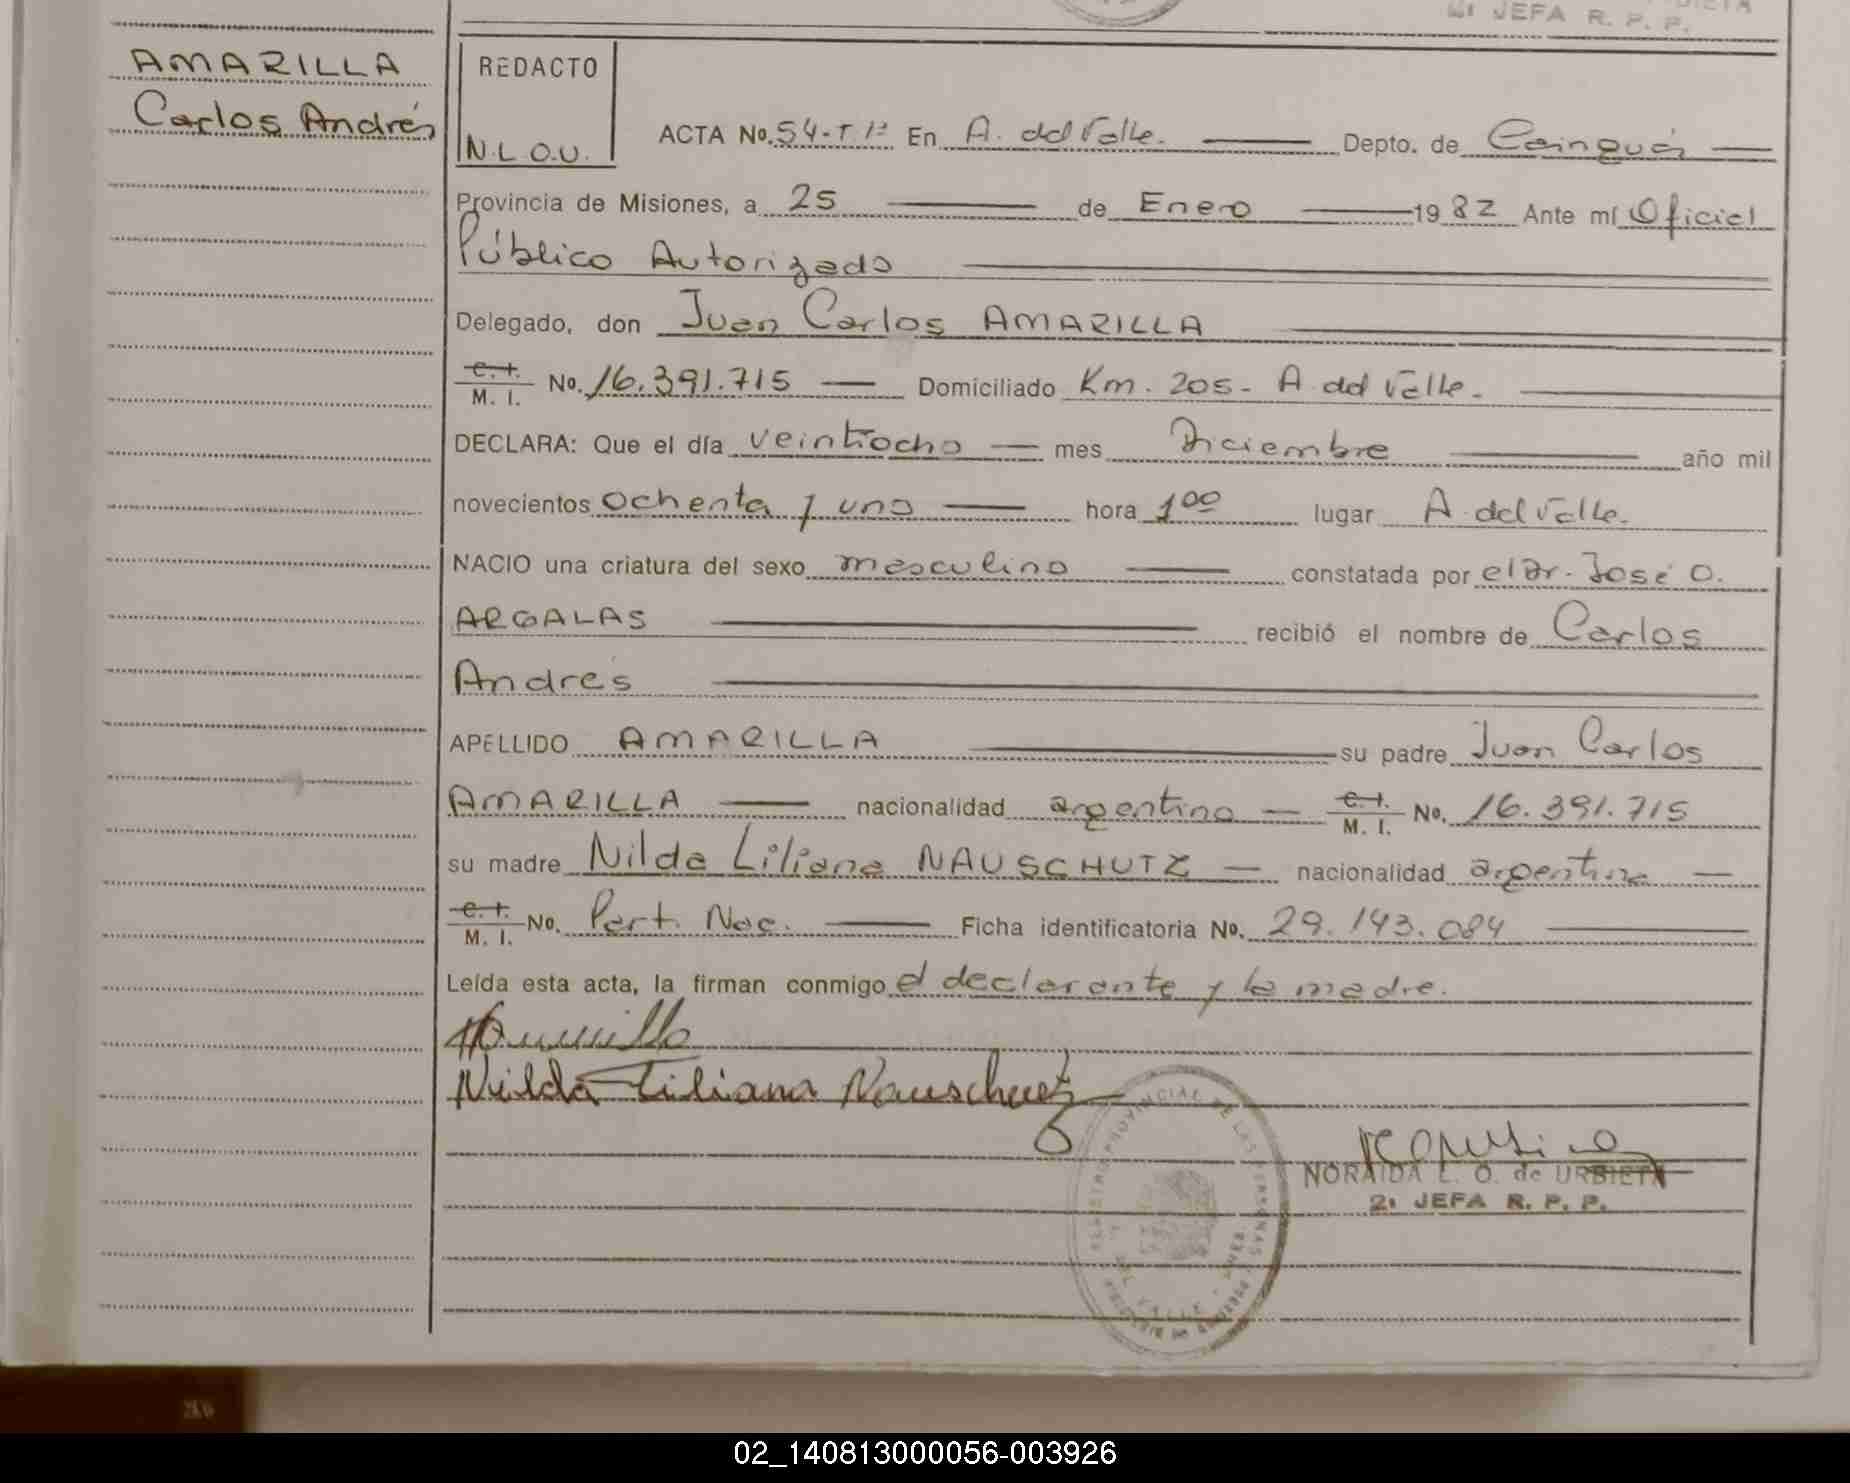 2ª JEFA R. P. P.
AMARILLA
Carlos Andrés
REDACTO
N.L.O.U.
ACTA No. 54-T.1º En A. del Valle. Depto. de Cainguás
Provincia de Misiones, a 25 de Enero 1982 Ante mí Oficial
Público Autorizado
Delegado, don Juan Carlos AMARILLA
C. I. / M. I. No. 16.391.715 Domiciliado Km. 205- A. del Valle.
DECLARA: Que el día veintiocho mes Diciembre año mil
novecientos ochenta y uno hora 1 00 lugar A. del Valle.
NACIO una criatura del sexo masculino constatada por el Dr. José O.
ARGALAS recibió el nombre de Carlos
Andrés
APELLIDO AMARILLA su padre Juan Carlos
AMARILLA nacionalidad argentino C. I. / M. I. No. 16.391.715
su madre Nilda Liliana NAUSCHUTZ nacionalidad argentina
C. I. / M. I. No. Part. Nac. Ficha identificatoria No. 29.143.084
Leída esta acta, la firman conmigo el declarante y la madre.
Nilda Liliana Nauschutz
REGISTRO PROVINCIAL DE LAS PERSONAS
DEL VALLE
NORAIDA L. O. de URBIETA
2ª JEFA R. P. P.
02_140813000056-003926